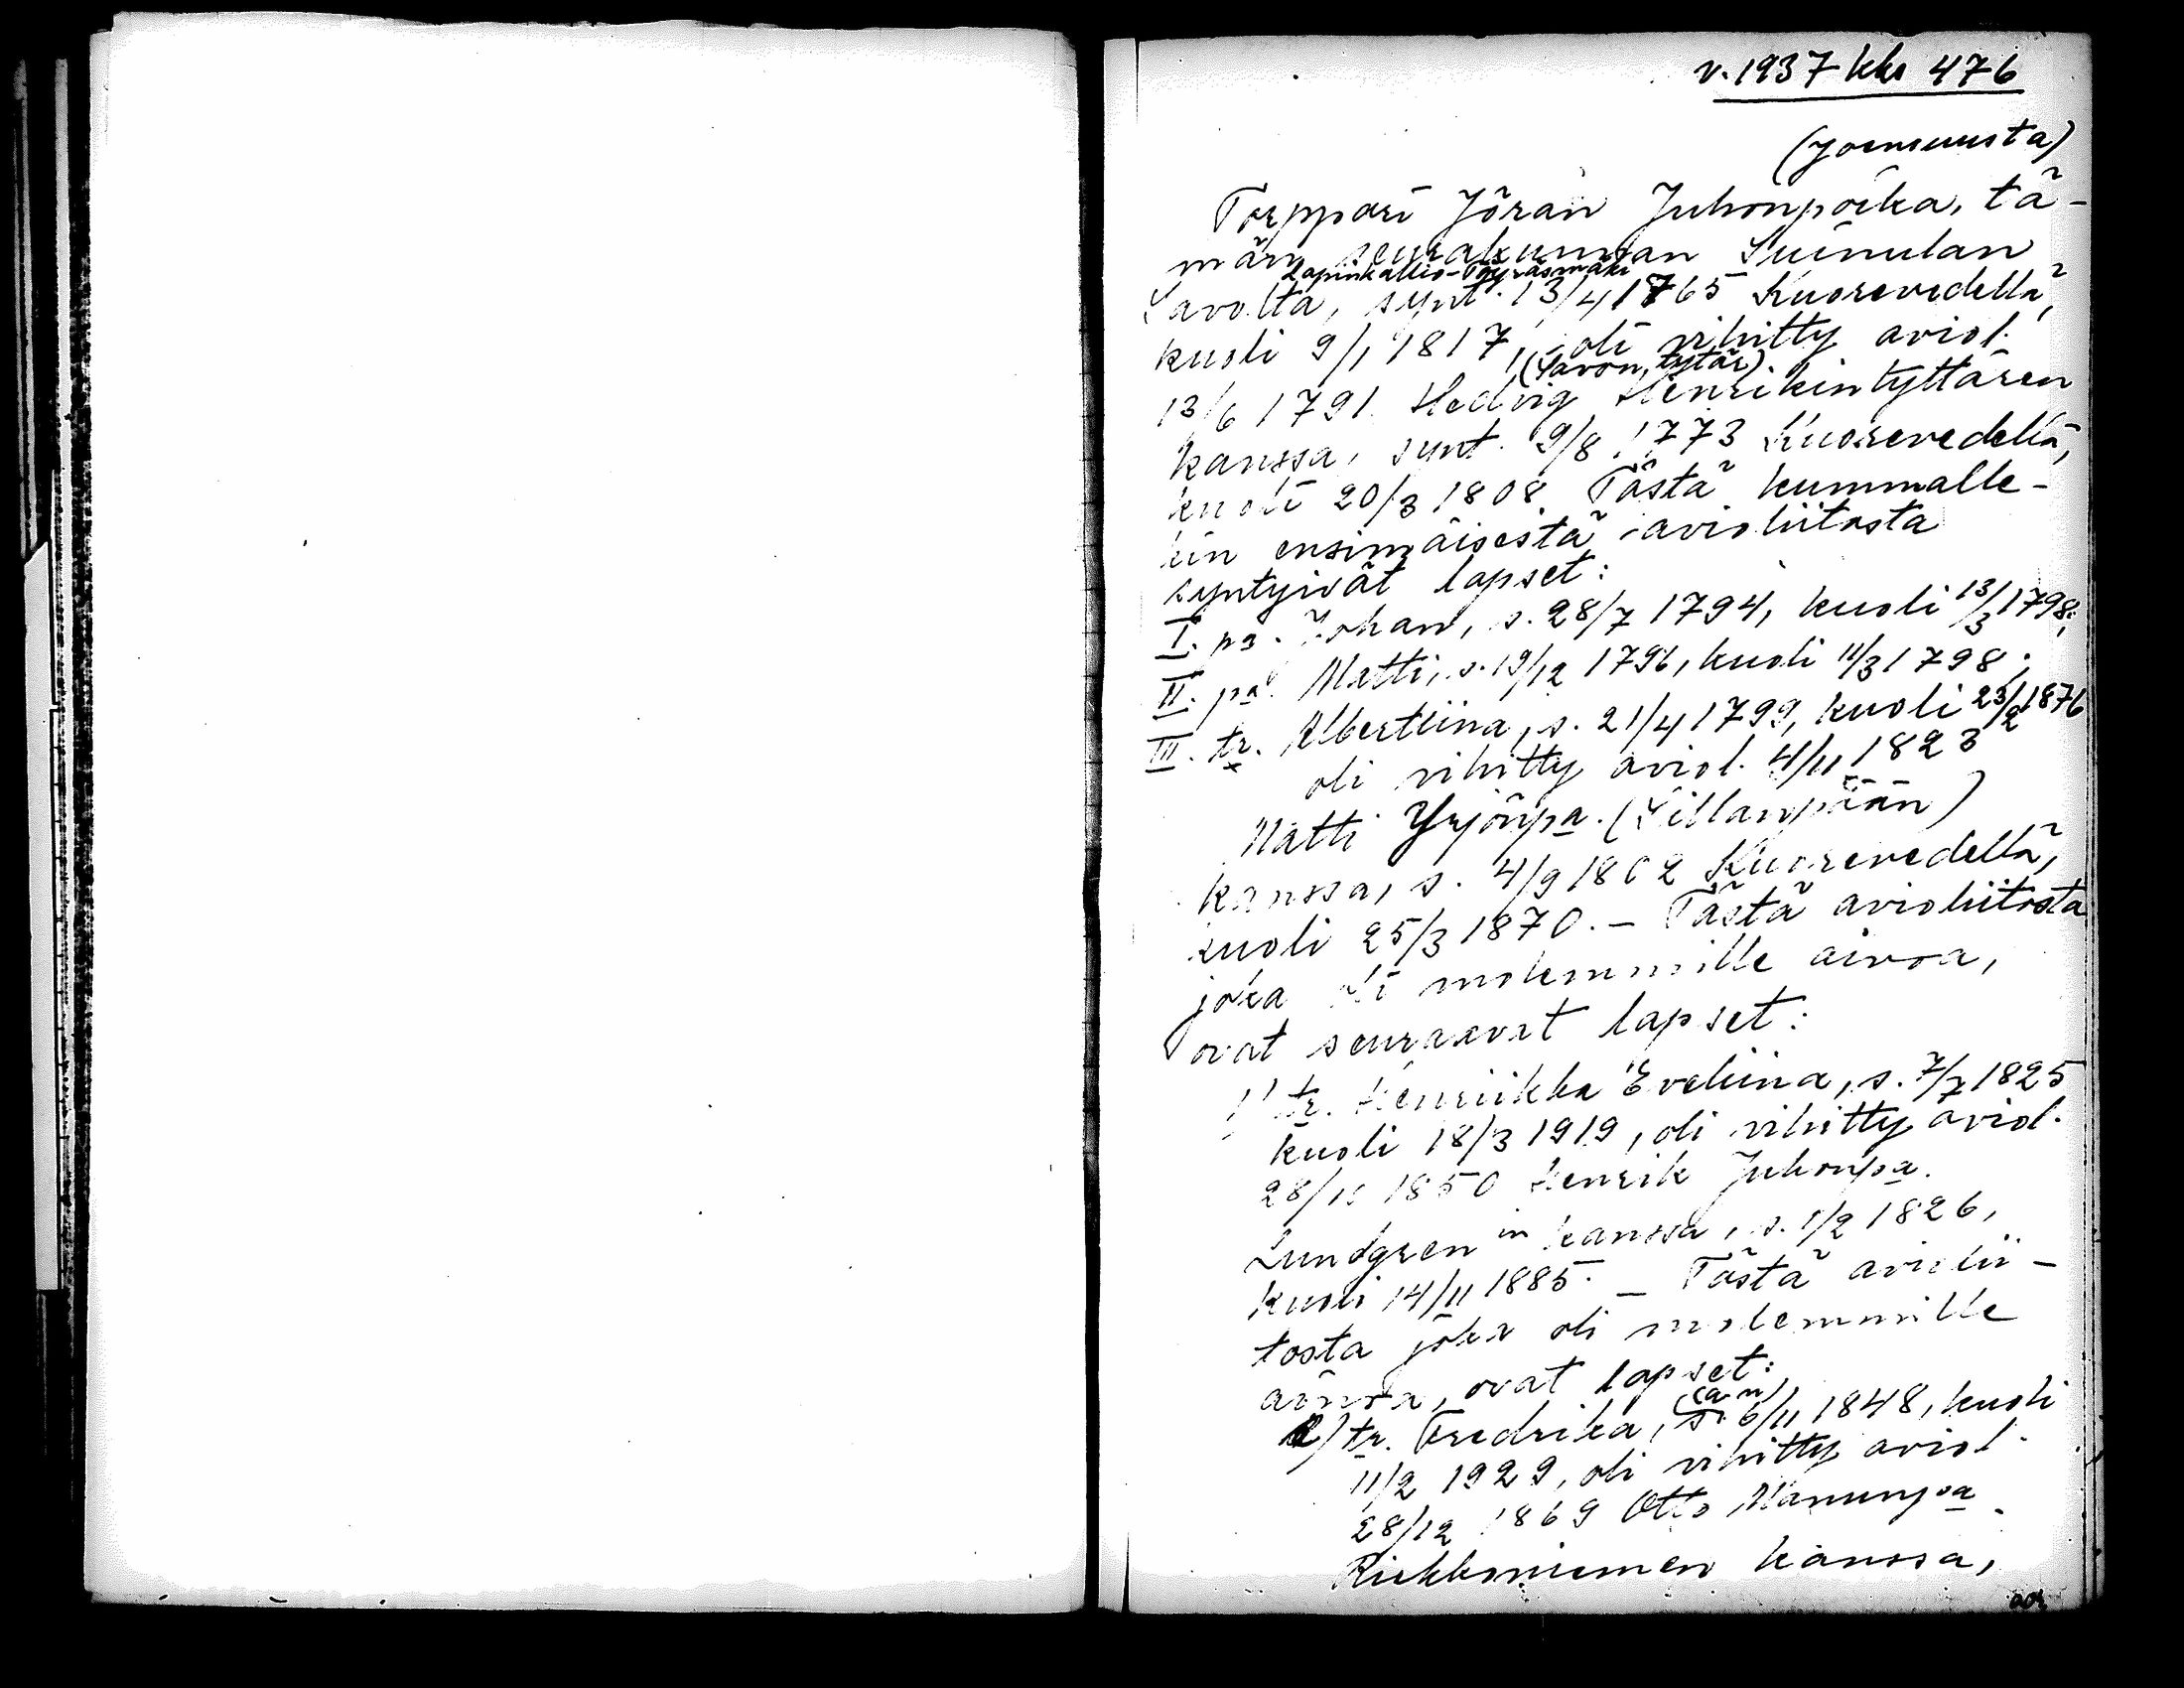 v. 1937 kks 476
(Joensuusta)
Torppari Jöran Juhonpoika, tä-
män seurakunnan Suinulan
Lapinkallio-Töyräsmäki
Savolta, synt. 13/4 1765 Kuorevedellä,
kuoli 9/1 1817, oli vihitty aviol.
(Savon, tytär)
13/6 1791 Hedvig Henrikintyttären
kanssa, synt. 9/8 1773 Kuorevedellä,
kuoli 20/3 1808. Tästä kummalle-
kin ensimäisestä avioliitosta
syntyivät lapset:
I. pa. Johan, s. 28/7 1794, kuoli 13/3 1798;
II. pa. Matti, s. 19/12 1796, kuoli 11/3 1798;
III. tr. Albertiina, s. 21/4 1799, kuoli 23/2 1876
oli vihitty aviol. 4/11 1823
Matti Yrjönpa. (Sillanpään)
kanssa, s. 4/9 1802 Kuorevedellä,
kuoli 25/3 1870. – Tästä avioliitosta
joka oli molemmille ainoa,
ovat seuraavat lapset:
1) tr. Henriikka Eveliina, s. 7/7 1825
kuoli 18/3 1919, oli vihitty aviol.
28/10 1850 Henrik Juhonpa.
Lundgren in kanssa, s. 1/2 1826,
kuoli 14/11 1885. – Tästä aviolii-
tosta joka oli molemmille
ainoa, ovat lapset:
(a u)
a) tr. Fredrika, s. 6/11 1848, kuoli
11/2 1929, oli vihitty aviol.
28/12 1869 Otto Manunpa.
Riekkoniemen kanssa,